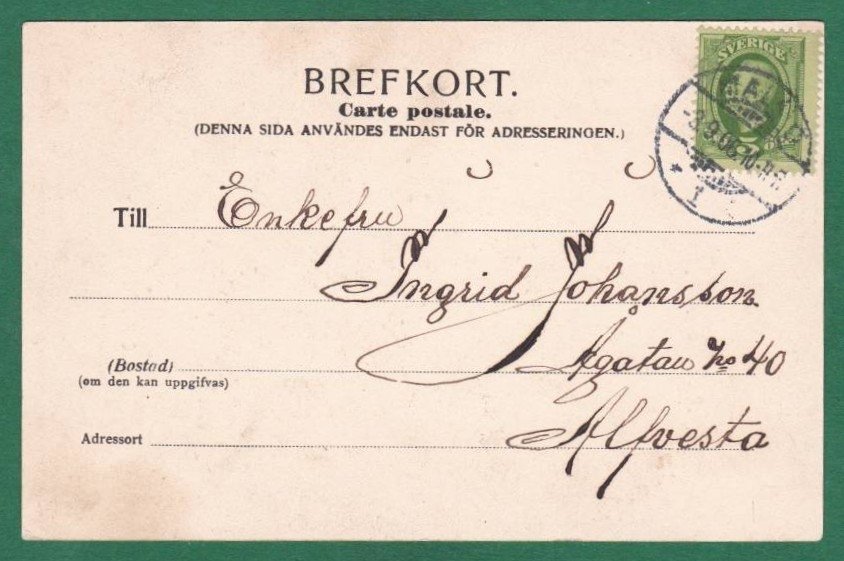 BREFKORT.
Carte postale.
(DENNA SIDA ANVÄNDES ENDAST FÖR ADRESSERINGEN.)
SVERIGE
Till Enkefru
Ingrid Johansson
(Bostad) Ågatan No 40
(om den kan uppgifvas)
Adressort Alfvesta